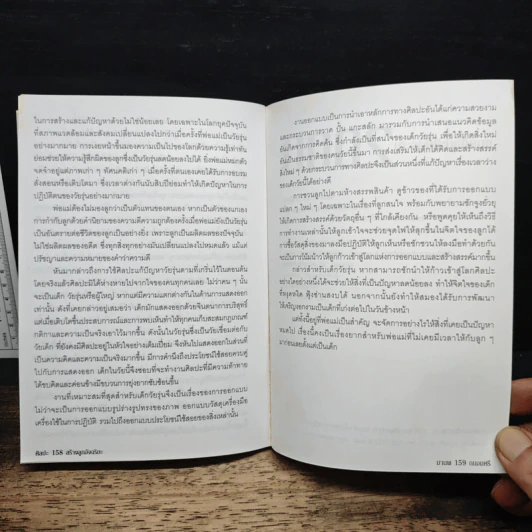 ในการสร้างและแก้ปัญหาด้วยไม่ใช่น้อยเลย โดยเฉพาะในโลกยุคปัจจุบัน
ที่สภาพแวดล้อมและสังคมเปลี่ยนแปลงไปกว่าเมื่อครั้งที่พ่อแม่เป็นวัยรุ่น
อย่างมากมาย การเงยหน้าขึ้นมองความเป็นไปของโลกด้วยความรู้เท่าทัน
ย่อมช่วยให้ความรู้สึกผิดของลูกซึ่งเป็นวัยรุ่นลดน้อยลงไปได้ ยิ่งพ่อแม่หมกตัว
จดจำอยู่แต่ภาพเก่า ๆ ทัศนคติเก่า ๆ เมื่อครั้งที่ตนเองเคยได้รับการอบรม
สั่งสอนหรือเติบโตมา ซึ่งเวลาต่างกันนับสิบปีย่อมทำให้เกิดปัญหาในการ
ปฏิบัติตนของวัยรุ่นอย่างมากมาย
พ่อแม่ไม่ควรมองว่าลูกเป็นตัวแทนของตนเอง หากเป็นตัวของลูกเอง
การกำกับลูกด้วยค่านิยามของความดีความถูกต้องครั้งเมื่อพ่อแม่ยังเป็นวัยรุ่น
เป็นอันตรายต่อชีวิตของลูกเป็นอย่างยิ่ง เพราะลูกเป็นผลผลิตของปัจจุบัน
ไม่ใช่ผลิตผลของอดีต ซึ่งทุกสิ่งทุกอย่างมันเปลี่ยนแปลงไปหมดแล้ว แม้แต่
ปรัชญาและความหมายของคำว่าความดี
หันมากล่าวถึงการใช้ศิลปะแก้ปัญหาวัยรุ่นตามที่เกริ่นไว้ในตอนต้น
โดยจริงแล้วศิลปะมิได้ห่างหายไปจากใจของคนทุกคนเลย ไม่ว่าคน ๆ นั้น
จะเป็นเด็ก วัยรุ่นหรือผู้ใหญ่ หากแต่มีความแตกต่างกันในด้านการแสดงออก
เท่านั้น ดังที่เคยกล่าวอยู่เสมอว่า เด็กมักแสดงออกด้วยจินตนาการบริสุทธิ์
แต่เมื่อเติบโตขึ้นประสบการณ์และการพบเห็นทำให้ทุกคนเก็บสะสมกฎเกณฑ์
กติกาและความเป็นจริงเอาไว้มากขึ้น ดังนั้นในวัยรุ่นซึ่งเป็นวัยเชื่อมต่อกับ
วัยเด็ก ที่ยังคงมีศิลปะอยู่ในหัวใจอย่างเต็มเปี่ยม จึงหันไปแสดงออกในส่วน
ที่เป็นความคิดและความเป็นจริงมากขึ้น มีการคำนึงถึงประโยชน์ใช้สอยควบคู่
ไปกับการแสดงออก เด็กในวัยนี้จึงชอบที่จะทำงานศิลปะที่มีความท้าทาย
ได้ขบคิดและค่อนข้างมีขบวนการยุ่งยากซับซ้อนขึ้น
งานที่เหมาะสมที่สุดสำหรับเด็กวัยรุ่นจึงเป็นเรื่องของการออกแบบ
ไม่ว่าจะเป็นการออกแบบรูปร่างรูปทรงของภาพ ออกแบบวัสดุเครื่องมือ
เครื่องใช้ในการปฏิบัติ รวมไปถึงออกแบบประโยชน์ใช้สอยของสิ่งเหล่านั้น
ศิลปะ 158 สร้างลูกอัจฉริยะ
งานออกแบบเป็นการนำเอาหลักการทางศิลปะอันได้แก่ความสวยงาม
และกระบวนการวาด ปั้น แกะสลัก มารวมกับการนำเสนอแนวคิดข้อมูล
อันเกิดจากการคิดค้น ซึ่งกำลังเป็นที่สนใจของเด็กวัยรุ่น เพื่อให้เกิดสิ่งใหม่
อันเป็นธรรมชาติของคนวัยนี้ขึ้นมา การส่งเสริมให้เด็กได้คิดและสร้างสรรค์
สิ่งใหม่ ๆ ด้วยกระบวนการทางศิลปะจึงเป็นส่วนหนึ่งที่แก้ปัญหาเรื่องเวลาว่าง
ของเด็กวัยนี้ได้อย่างดี
การชวนลูกไปตามห้างสรรพสินค้า ดูข้าวของที่ได้รับการออกแบบ
แปลก ๆ ใหม่ ๆ โดยเฉพาะในเรื่องที่ลูกสนใจ พร้อมกับพยายามชักจูงยั่วยุ
ให้เกิดการสร้างสรรค์ด้วยวัตถุอื่น ๆ ที่ใกล้เคียงกัน หรือพูดคุยให้เห็นถึงวิธี
การทำงานเหล่านั้นให้ลูกเข้าใจจะช่วยจุดไฟให้ลุกขึ้นในจิตใจของลูกได้
การซื้อวัสดุสิ่งของมาลงมือปฏิบัติให้ลูกเห็นหรือชักชวนให้ลงมือทำด้วยกัน
จะเป็นการโน้มน้าวให้ลูกก้าวเข้าสู่โลกแห่งการออกแบบและสร้างสรรค์มากขึ้น
กล่าวสำหรับเด็กวัยรุ่น หากสามารถชักนำให้ก้าวเข้าสู่โลกศิลปะ
อย่างใดอย่างหนึ่งได้จะช่วยให้สิ่งที่เป็นปัญหาลดน้อยลง ทำให้จิตใจของเด็ก
ที่หงุดหงิด ฟุ้งซ่านสงบได้ นอกจากนั้นยังทำให้สมองได้รับการพัฒนา
ให้เจริญงอกงามเป็นเด็กที่เก่งต่อไปในวันข้างหน้า
แต่ทั้งนี้อยู่ที่พ่อแม่เป็นสำคัญ จะจัดการอย่างไรให้สิ่งที่เคยเป็นปัญหา
หมดไป เรื่องนี้คงเป็นเรื่องยากสำหรับพ่อแม่ที่ไม่เคยมีเวลาให้กับลูก ๆ
มาก่อนเลยตั้งแต่เป็นเด็ก
มานพ 159 ถนอมศรี